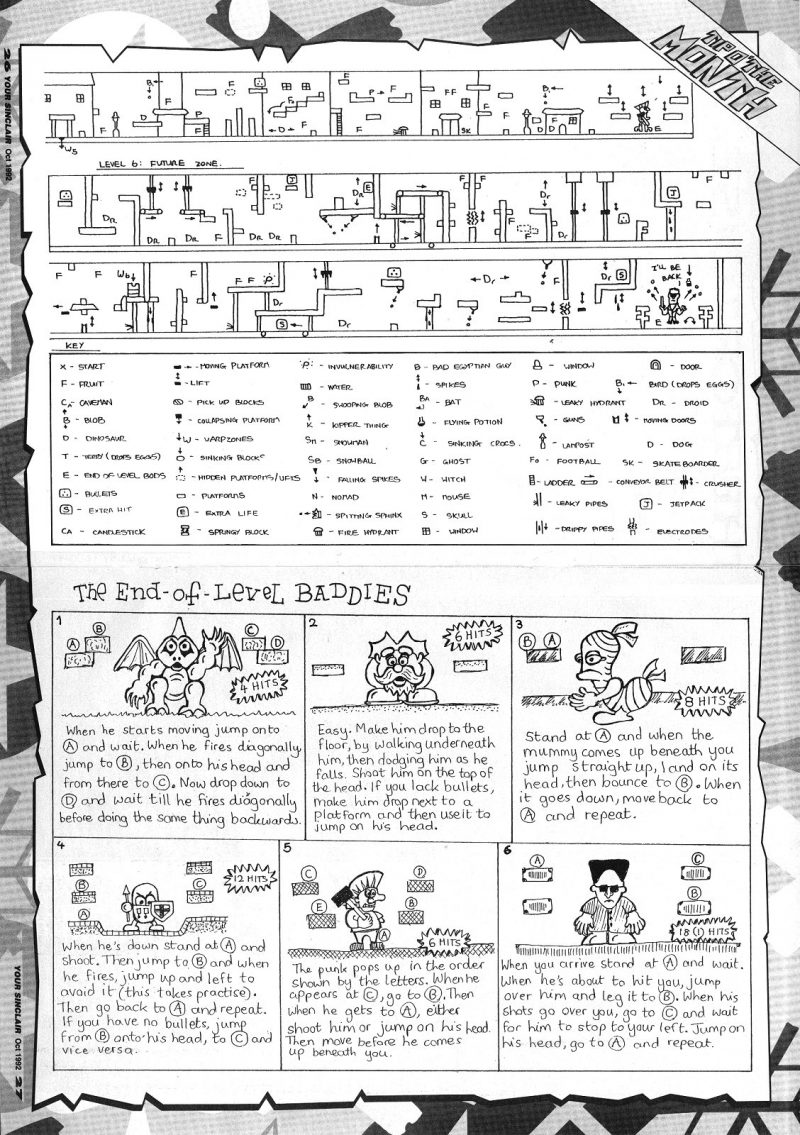 TIP O' THE
MONTH
26 YOUR SINCLAIR Oct 1992
F B F F P F F P F F B F E
F F F P D SK D D E
W5
LEVEL 6: FUTURE ZONE.
F F J E F F F Dr J F F
DR DR DR DR DR Dr
F F Wb F F F P Dr F Dr S I'LL BE
BACK
S Dr E
KEY
X - START
F - FRUIT
CA - CAVEMAN
B - BLOB
D - DINOSAUR
T - TERRY (DROPS EGGS)
E - END OF LEVEL BODS
- BULLETS
S - EXTRA HIT
CA - CANDLESTICK
- MOVING PLATFORM
- LIFT
- PICK UP BLOCKS
- COLLAPSING PLATFORM
W - WARPZONES
- SINKING BLOCKS
- HIDDEN PLATFORMS/LIFTS
- PLATFORMS
E - EXTRA LIFE
- SPRINGY BLOCK
P - INVULNERABILITY
- WATER
B - SWOOPING BLOB
K - KIPPER THING
SM - SNOWMAN
SB - SNOWBALL
- FALLING SPIKES
N - NOMAD
- SPITTING SPHINX
- FIRE HYDRANT
B - BAD EGYPTIAN GUY
- SPIKES
BA - BAT
- FLYING POTION
C - SINKING CROCS.
G - GHOST
W - WITCH
M - MOUSE
S - SKULL
- WINDOW
- WINDOW
D - PUNK
- LEAKY HYDRANT
- GUNS
- LAMPOST
FO - FOOTBALL
- LADDER
- CONVEYOR BELT
- CRUSHER
- LEAKY PIPES
- DRIPPY PIPES
- DOOR
B - BIRD (DROPS EGGS)
DR - DROID
- MOVING DOORS
D - DOG
SK - SKATEBOARDER
J - JETPACK
- ELECTRODES
The End-of-Level BADDIES
1
A B C D
4 HITS
When he starts moving jump onto
A and wait. When he fires diagonally
jump to B, then onto his head and
from there to C. Now drop down to
D and wait till he fires diagonally
before doing the same thing backwards.
2
6 HITS
Easy. Make him drop to the
floor, by walking underneath
him, then dodging him as he
falls. Shoot him on the top of
the head. If you lack bullets,
make him drop next to a
platform and then use it to
jump on his head.
3
B A
8 HITS
Stand at A and when the
mummy comes up beneath you
jump straight up, land on its
head, then bounce to B. When
it goes down, move back to
A and repeat.
4
B C
A
12 HITS
When he's down stand at A and
shoot. Then jump to B and when
he fires, jump up and left to
avoid it (this takes practise).
Then go back to A and repeat.
If you have no bullets, jump
from B onto his head, to C and
vice versa.
5
C D
E B
A
6 HITS
The punk pops up in the order
shown by the letters. When he
appears at C, go to B. Then
when he gets to A, either
shoot him or jump on his head.
Then move before he comes
up beneath you.
6
A C
B
18 (!) HITS
When you arrive stand at A and wait.
When he's about to hit you, jump
over him and leg it to B. When his
shots go over you, go to C and wait
for him to stop to your left. Jump on
his head, go to A and repeat.
YOUR SINCLAIR Oct 1992 27